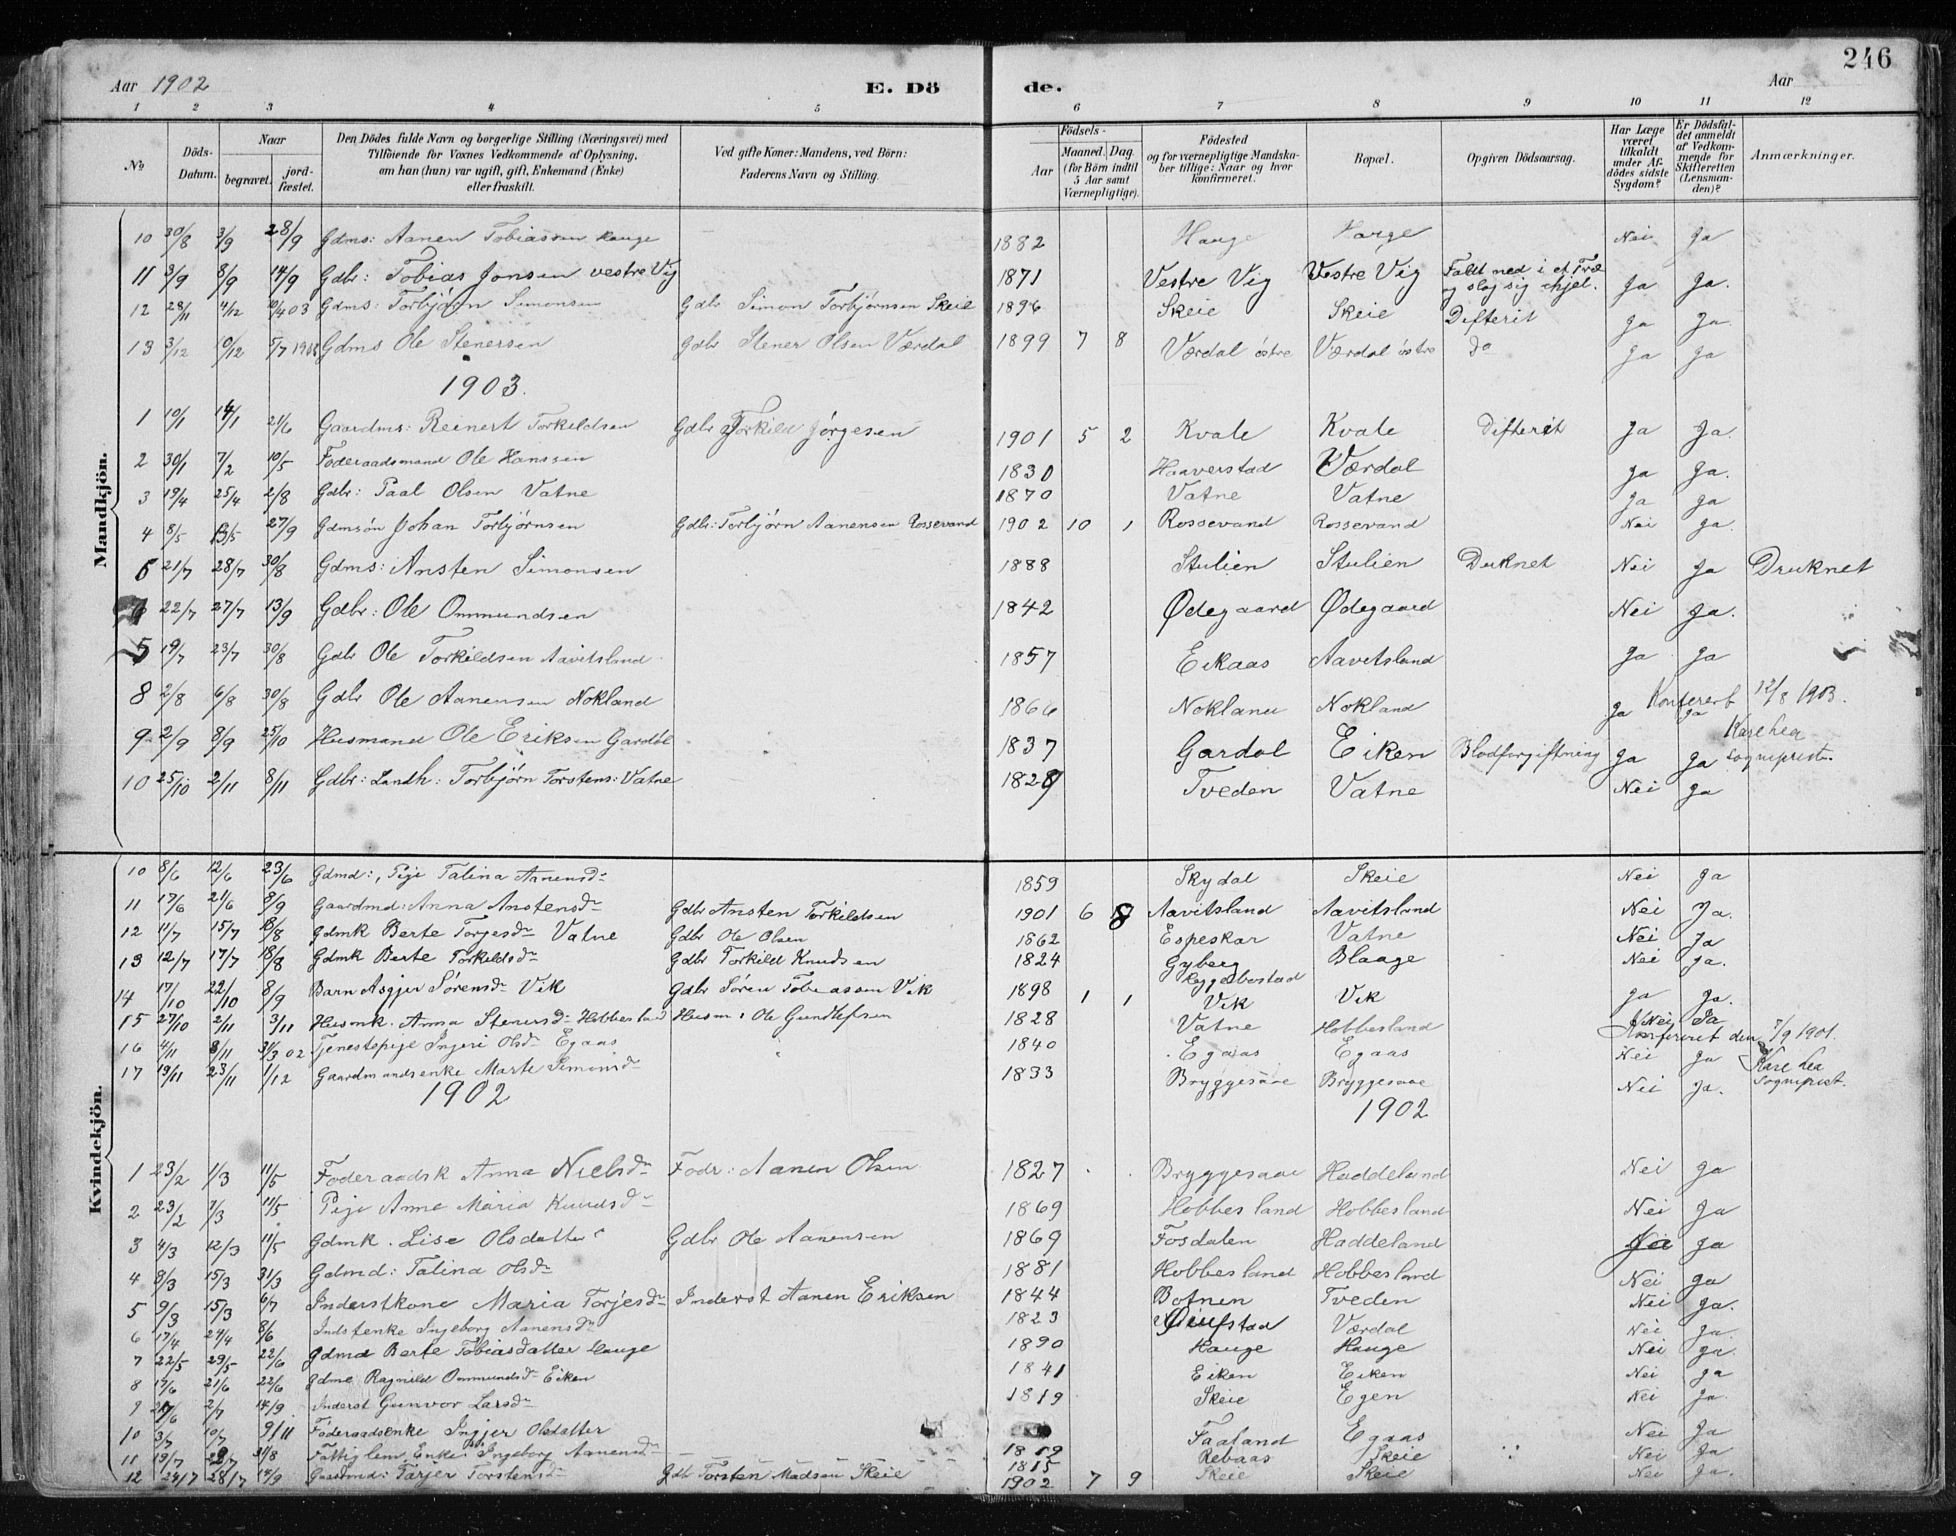 246
Aar 1902 E. Dö de. Aar
1 2 3 4 5 6 7 8 9 10 11 12
No Döds-Datum. Naar begravet. jordfæstet. Den Dödes fulde Navn og borgerlige Stilling (Næringsvei) med Tilföiende for Voxnes Vedkommende af Oplysning, om han (hun) var ugift, gift, Enkemand (Enke) eller fraskilt. Ved gifte Koner: Mandens, ved Börn: Faderens Navn og Stilling. Födsels- Aar Maaned. Dag (for Börn indtil 5 Aar samt Værnepligtige). Födested og for værnepligtige Mandskaber tillige: Naar og hvor konfirmeret. Bopæl. Opgiven Dödsaarsag. Har Læge været tilkaldt under Afdödes sidste Sygdom? Er Dödsfaldet anmeldt af Vedkommende for Skifteretten (Lensmanden)? Anmærkninger.
Mandkjön.
10 30/8 3/9 28/9 Gdms: Aanen Tobiassen Hauge 1882 Hauge Hauge Nei Ja
11 3/9 8/9 14/9 Gdbr: Tobias Jonsen vestre Vig 1871 Vestre Vig Vestre Vig Faldt ned i et Træ og slog sig ihjel. Ja Ja.
12 28/11 4/12 10/4 03 Gdms: Torbjørn Simonsen Gdbr Simon Torbjørnsen Skeie 1896 Skeie Skeie Difterit Ja Ja.
13 3/12 /12 5/7 1903 Gdms Ole Stenersen Gdbr Stener Olsen Værdal 1899 7 8 Værdal östre Værdal östre do Ja Ja
1903.
1 10/1 14/1 21/6 Gaardms: Reinert Torkildsen Gdbr Torkild Jørgesen 1901 5 2 Kvale Kvale Difterit Ja Ja.
2 30/1 7/2 10/5 Føderaadsmand Ole Hanssen 1830 Haaverstad Værdal Ja Ja.
3 19/4 25/4 2/8 Gdbr: Paal Olsen Vatne 1870 Vatne Vatne Ja Ja
4 8/5 13/5 27/9 Gdmsøn Johan Torbjørnsen Gdbr: Torbjørn Aanensen Rossevand 1902 10 1 Rossevand Rossevand Nei Ja.
6 21/7 28/7 30/8 Gdms: Ansten Simonsen 1888 Stulien Stulien Duknet Nei Ja Druknet
22/7 27/7 13/9 Gdbr: Ole Ommundsen 1842 Ødegaard Ødegaard Nei Ja.
5 19/7 23/7 30/8 Gdbr Ole Torkildsen Aavitsland 1857 Eikaas Aavitsland Ja Ja
8 2/8 6/8 30/8 Gdbr Ole Aanensen Nokland 1866 Nokland Nokland Ja Ja Konfereret 12/8 1903.
9 2/9 8/9 25/10 Husmand Ole Eriksen Gardøl 1837 Gardal Eiken Blodforgiftning Ja Ja Kase Lea Sogneprest.
10 25/10 2/11 8/11 Gdbr: Landh: Torbjørn Torstens: Vatne 1829 Tveden Vatne Nei Ja
Kvindekjön.
10 8/6 12/6 23/6 Gdmd:, Pige Talina Aanensdr 1859 Skydal Skeie Nei Ja
11 17/6 21/6 8/9 Gaardmd: Anna Anstensdr Gdbr Ansten Torkildsen 1901 6 8 Aavitsland Aavitsland Nei Ja.
12 11/7 15/7 18/8 Gdmk Berte Torjesdr Vatne Gdbr Ole Olsen 1862 Espeskar Vatne Nei Ja
13 12/7 17/7 18/8 Gdmk Berte Torkildsdr Gdbr Torkild Knudsen 1824 Gyberg Blaage Nei Ja.
14 17/10 22/10 8/9 Barn Asgjer Sörensdr Vik Gdbr Sören Tobiassen Vik 1898 1 1 Vik Vik Ja Ja.
15 27/10 2/11 3/11 Husmk. Anna Stenersdr Hobbesland Husm: Ole Gundlefsen 1828 Vatne Hobbesland Nei Ja
16 4/11 8/11 31/3 02 Tjenestepige Ingeri Olsdr Egaas 1840 Egaas Egaas Nei Ja Konfereret den 7/9 1901.
17 19/11 23/11 1/12 Gaardmandsenke Marte Simonsdr 1833 Bryggesaae Bryggesaae Nei Ja. Kase Lea Sogneprest.
1902 1902
1 23/2 1/3 11/5 Foderaadsk Anna Nielsdr Fodr: Aanen Olsen 1827 Bryggesaae Haddeland Nei Ja
2 23/2 7/3 11/5 Pige Anne Maria Knudsdr 1869 Hobbesland Hobbesland Nei Ja
3 4/3 12/3 11/5 Gdmk. Lise Olsdatter Gdbr Ole Aanensen 1869 Fosdalen Haddeland Nei Ja
4 9/3 15/3 31/3 Gdmd: Talina Olsdr 1881 Hobbesland Hobbesland Nei Ja
5 9/3 15/3 6/7 Inderstkone Maria Torjesdr Inderst Aanen Eriksen 1844 Botnen Tveden Nei Ja.
6 17/4 24/4 8/6 Indstenke Ingeborg Aanensdr 1823 Værdal Nei Ja.
7 22/5 29/5 22/6 Gdmd Berte Tobiasdatter Hauge 1890 Hauge Hauge Nei Ja.
8 17/6 21/6 22/6 Gdme Ragnild Ommundsdr Eiken 1841 Eiken Eiken Nei Ja
9 /6 2/7 14/9 Inderst Gunvor Larsdr 1819 Skeie Egen Nei Ja.
10 3/7 10/7 9/11 Føderaadsenke Ingjer Olsdatter Faaland Egaas Nei Ja
11 19/7 /7 31/8 Fattiglem, Enke Ingeborg Aanensdr 1815 Rebaas Skeie Nei Ja
12 24/7 28/7 14/9 Gaardmd: Tarjer Torstensdr Gdb Torsten Madsen Skeie 1902 7 9 Skeie Skeie Nei Ja.